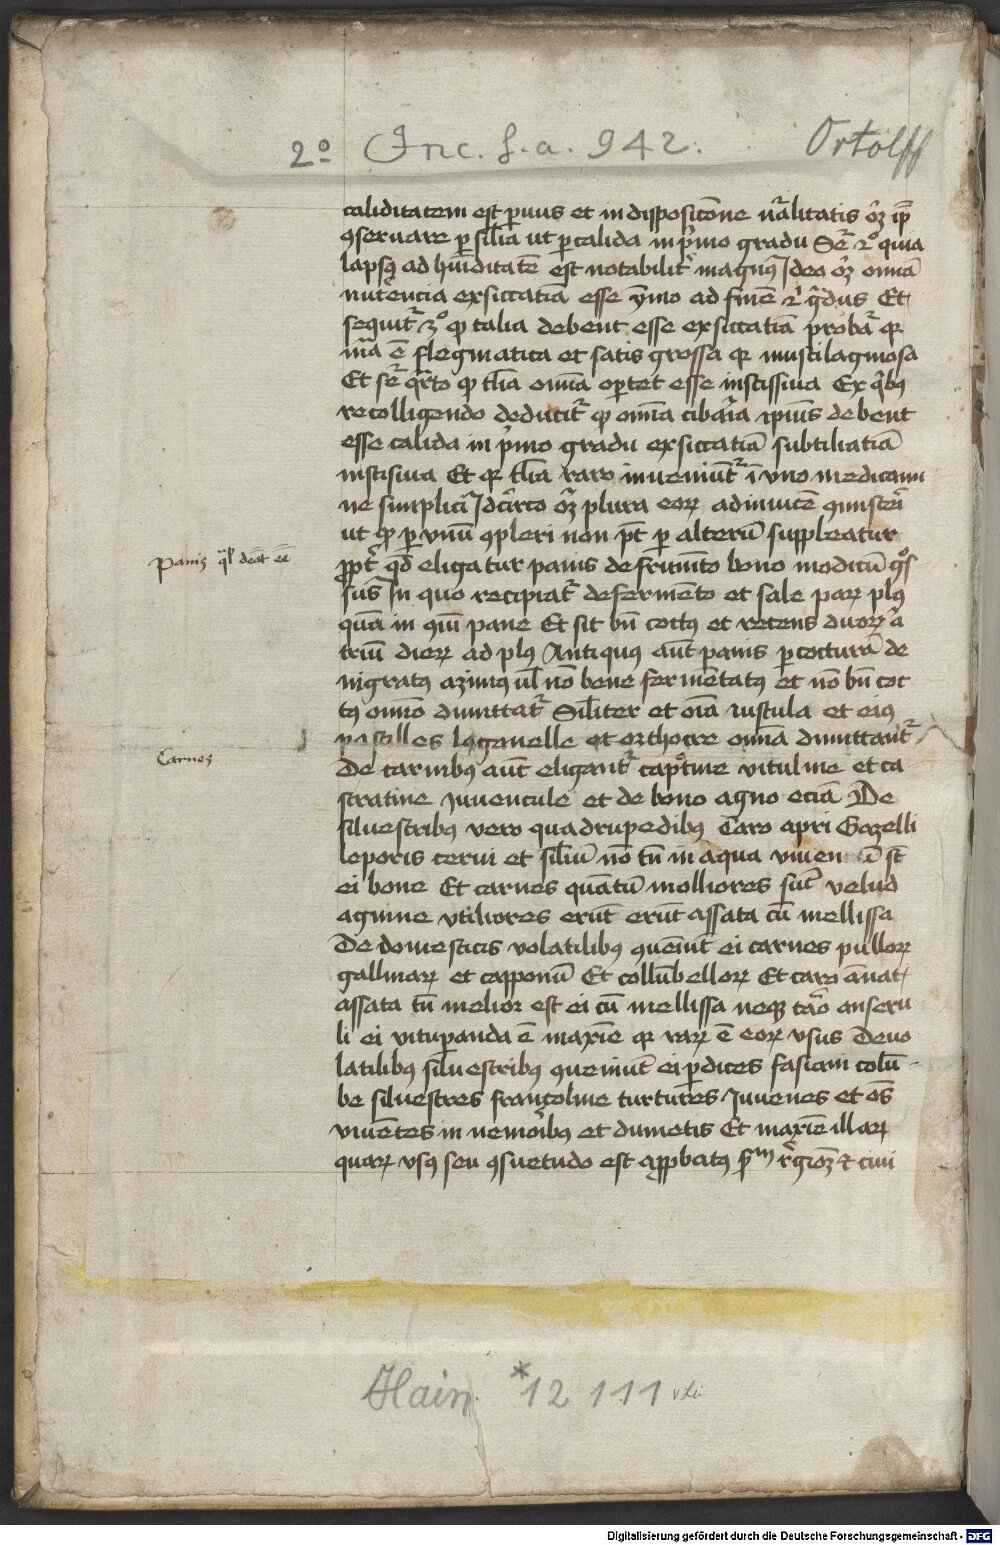 2º Inc. s. a. 942.
Ortolff
caliditatem est paruus et in disposicõne nãlitatis oꝫ ip̃
ꝯseruare ꝑ silia ut ꝑ calida in pͥmo gradu Ser̃ 2º quia
lapsꝰ ad hũiditatẽ est notabilit̃ magnꝰ Ideo oꝫ omnia
nutͥencia exsiccatiã esse ỹmo ad finẽ 2ͥ gͣdus Et
sequit̃ 3º ꝙ talia debent esse exsiccatiã probat̃ qꝛ
mã ẽ flegmatica et satis grossa qꝛ muscilaginosa
Et ser̃ qͣrto ꝙ tl̃ia omnia oꝑtet esse inscissiua Ex qͥbꝰ
recolligendo deducit̃ ꝙ omnia cibaria ipius debent
esse calida in pͥmo gradu exsiccatiã subtiliatiã
inscisiua Et qꝛ tl̃ia raro inueniũt̃ ĩ vno medicami
ne simplici Idcͥrco oꝫ plura eoꝝ adinuicẽ ꝯmisceri
ut ꝙ ꝑ vnũ ꝯpleri non pt̃ ꝑ alterũ suppleatur
Panis ql̃ deat eẽ
ꝓpt̃ qd̃ eligatur panis de frumẽto bono modicũ gͦs
sus In quo recipiat̃ de fermẽto et sale paꝝ plꝰ
quã in ꝯmͥ pane Et sit bñ coctꝰ et recens duoꝝ ͣ
triũ dieꝝ ad plꝰ Antiquus aũt panis ꝑ cocturã de
nigratꝰ azimus ul̃ nõ bene fermẽtatꝰ et nõ bñ coc
tꝰ omnino dimittat̃ Siliter et oĩa iustula et eiꝰ
pastilles laganelle et orthocre omnia dimittant̃
Carnes
De carnibꝰ aũt eligant̃ capͦine vituline et ca
stratine iuuencule et de bono agno eciã De
siluestribꝰ vero quadrupedibꝰ Caro apri Gazelli
leporis cerui et siliũ nõ tñ in aqua viuen ũ st̃
ei bone Et carnes quãtũ molliores sũt velud
agnine vtiliores erũt erũt assata cũ mellissa
De domesticis volatilibꝰ ꝯueniũt ei carnes pulloꝝ
gallinaꝝ et capponũ Et collũbelloꝝ Et caro ãnat
assata tñ melior est ei cũ mellissa neqꝫ caͦ anseru
li ei vituꝑanda ẽ maxĩe qꝛ raꝝ ẽ eoꝝ vsus De uo
latilibꝰ siluestribꝰ ꝯueniũt ei ꝑdices fasiani colũ-
be siluestres francoline turtures Iuuenes et oẽs
viuẽtes in nemoribꝰ et dumetis Et maxĩe illaꝝ
quaꝝ vsꝰ seu ꝯsuetudo est aꝓbatꝰ sᵐ rͤgioꝫ & ciui
Hain *12 111
Digitalisierung gefördert durch die Deutsche Forschungsgemeinschaft - DFG